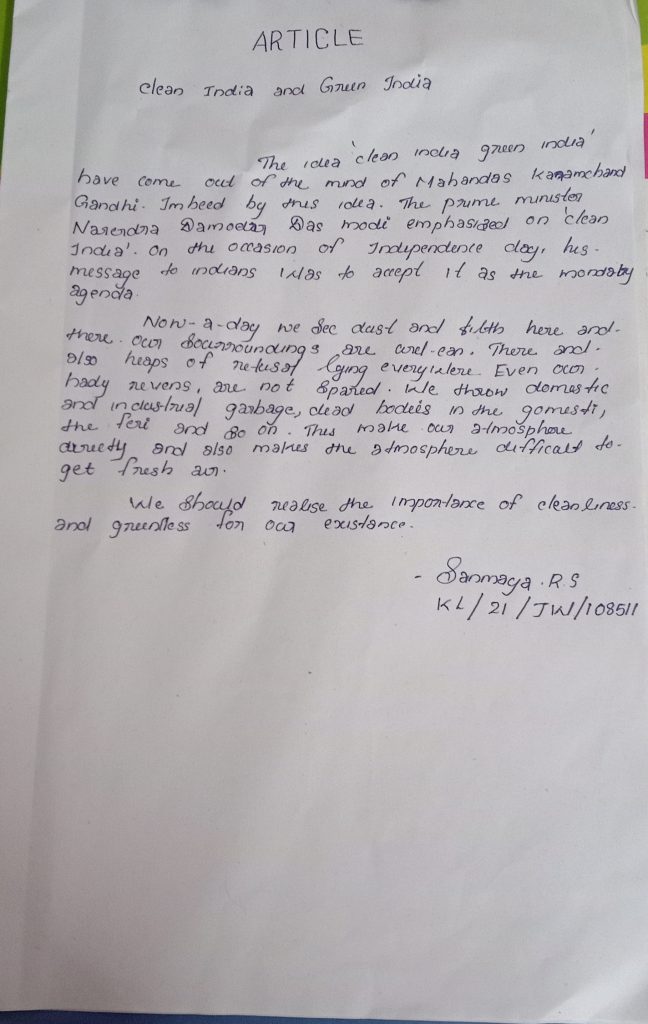 ARTICLE
Clean India and Green India
The idea 'clean india green india'
have come out of the mind of Mahandas Karamchand
Gandhi. Imbeed by this idea. The prime minister
Narendra Damodar Das modi emphasized on 'clean
India'. On the occasion of Independence day, his-
message to indians was to accept it as the mondaby
agenda.
Now-a-day we see dust and filth here and-
there. our sourroundings are uncl-ean. There and-
also heaps of refusal lying everywhere. Even our-
hady revens, are not spared. We throw domestic
and industrial garbage, dead bodies in the gomesti,
the feri and so on. This make our atmosphere
directly and also makes the atmosphere difficalt to-
get fresh air.
We should realise the importance of cleanliness-
and greenless for our existance.
- Sanmaya. R.S
KL/21/JW/108511